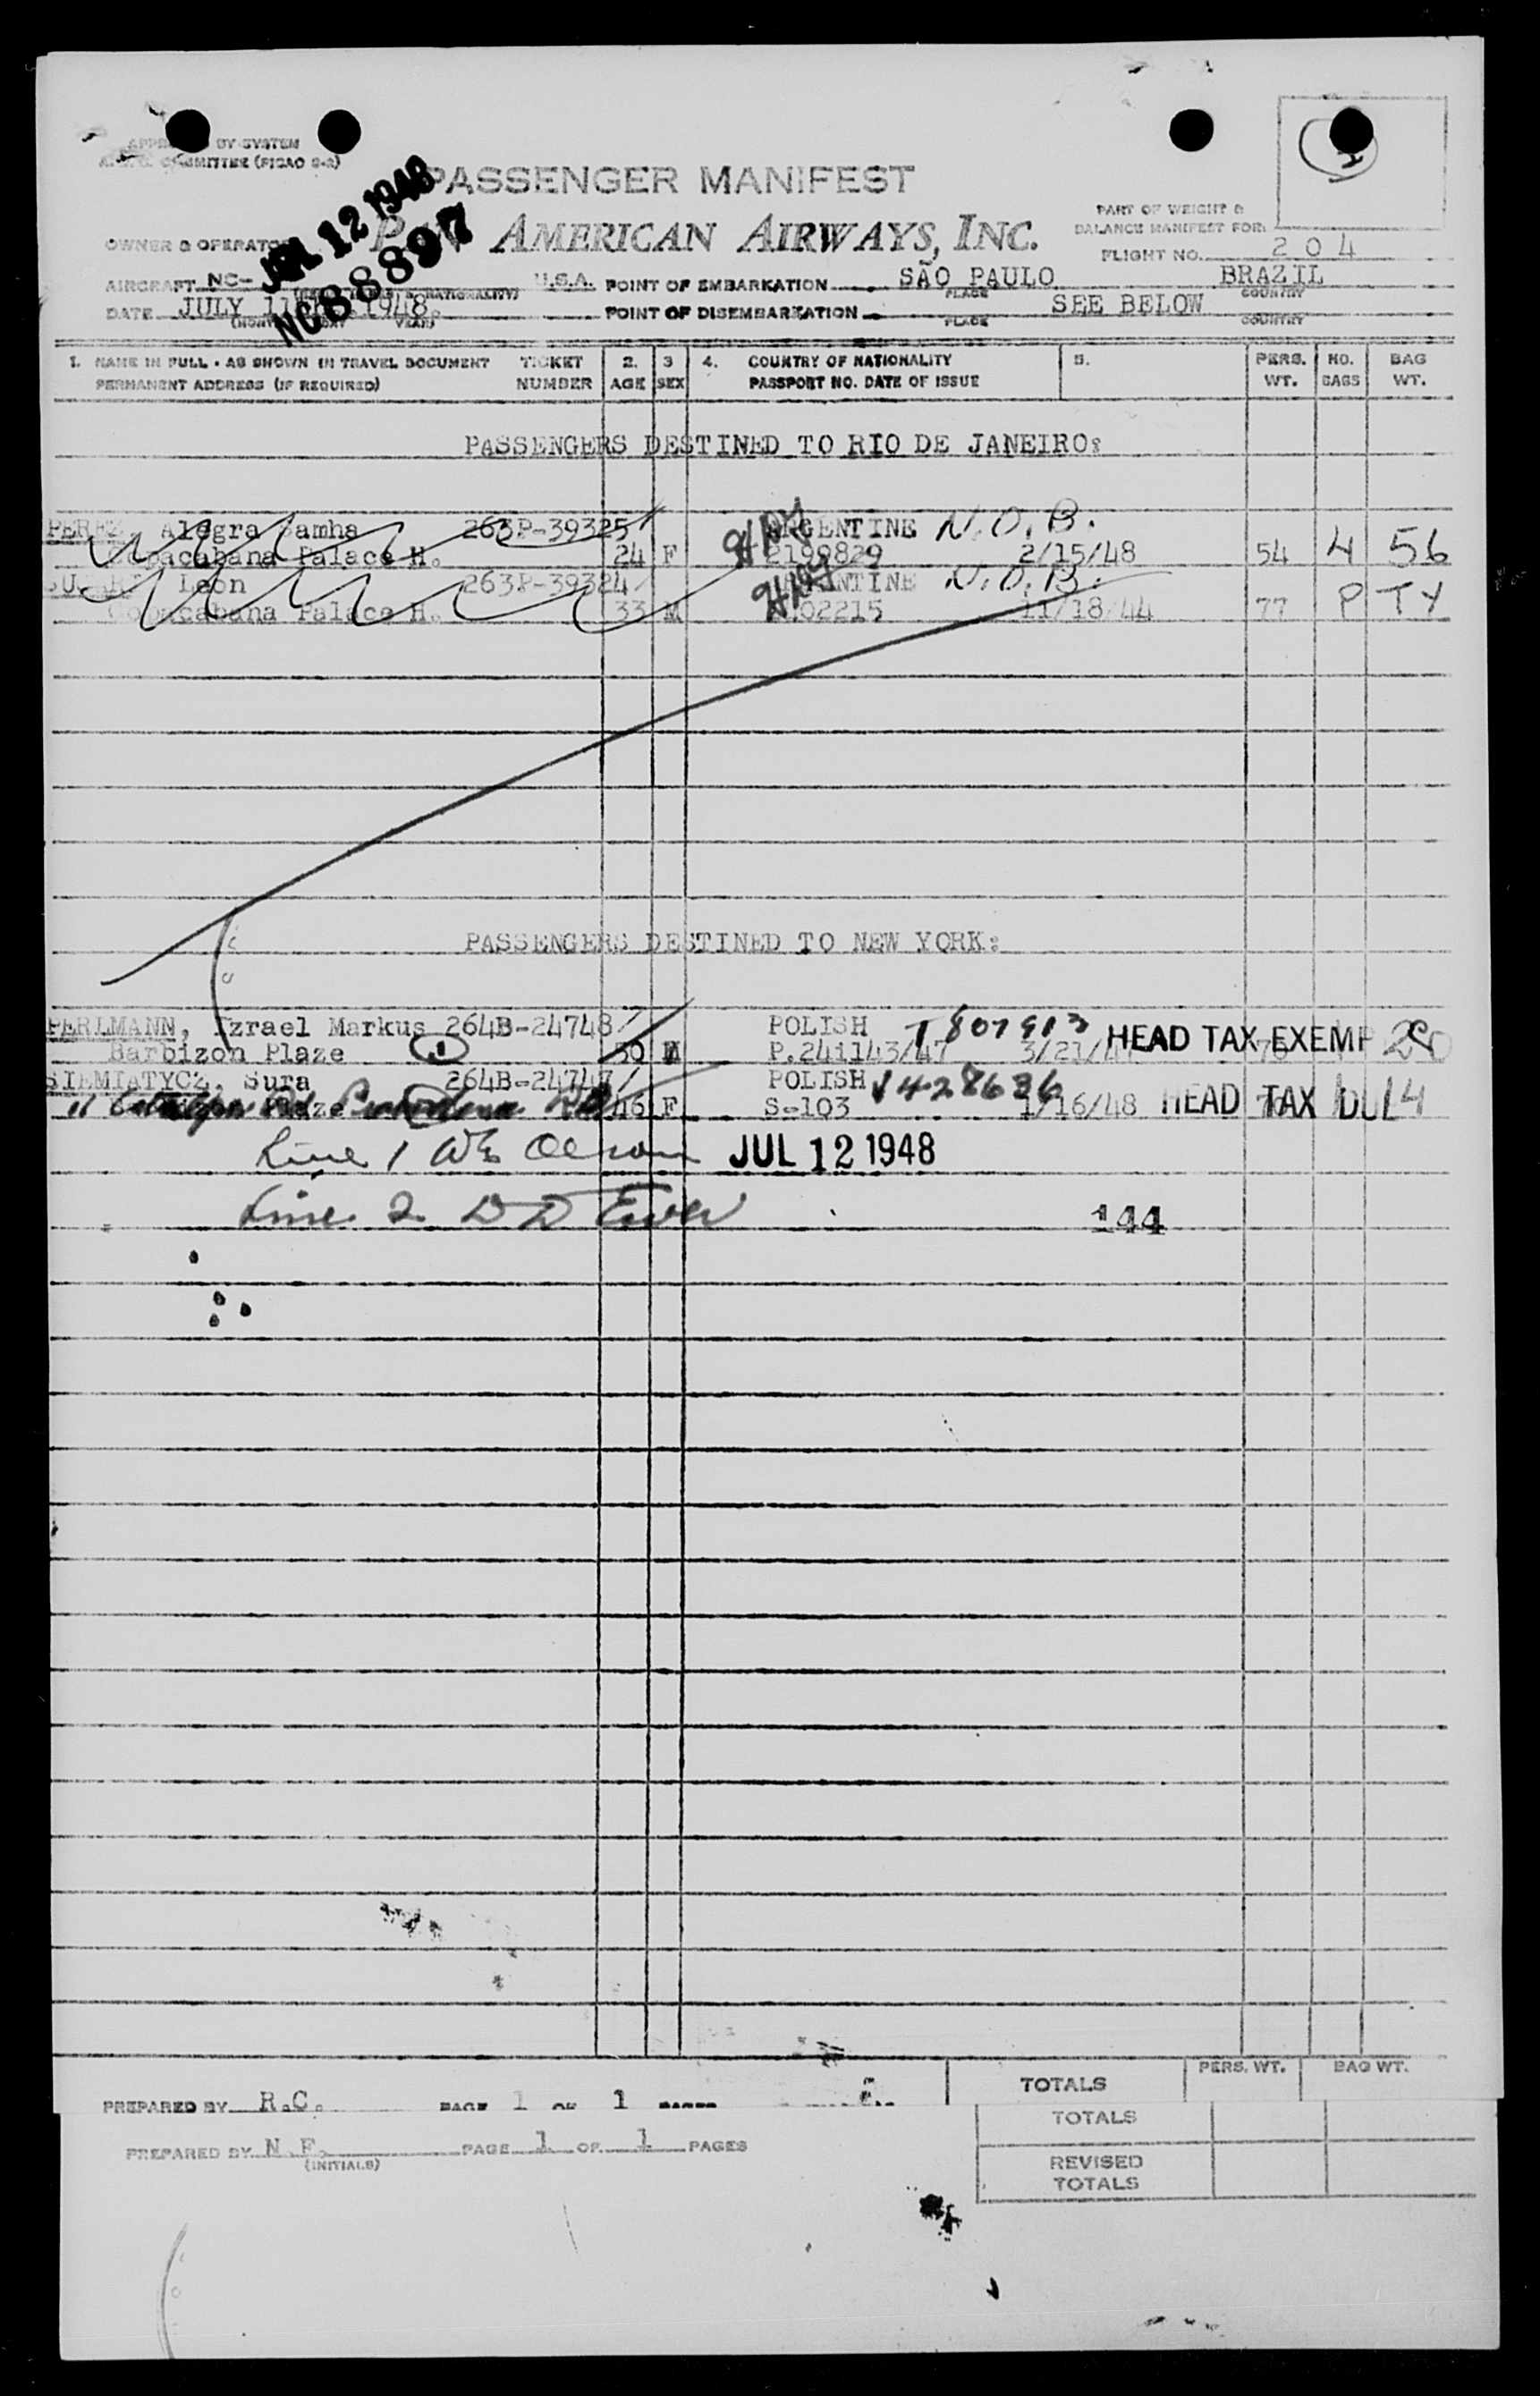 BY SYSTEM
COMMITTEE (PICAO S-2)
JUL 12 1948
NC88897
PASSENGER MANIFEST
AMERICAN AIRWAYS, INC.
OWNER & OPERATOR
PART OF WEIGHT &
BALANCE MANIFEST FOR:
FLIGHT NO. 204
AIRCRAFT NC- U.S.A. POINT OF EMBARKATION SÃO PAULO BRAZIL
NATIONALITY) PLACE COUNTRY
DATE JULY 1948. POINT OF DISEMBARKATION SEE BELOW
YEAR) PLACE COUNTRY
1. NAME IN FULL - AS SHOWN IN TRAVEL DOCUMENT TICKET 2. 3 4. COUNTRY OF NATIONALITY 5. PERS. NO. BAG
PERMANENT ADDRESS (IF REQUIRED) NUMBER AGE SEX PASSPORT NO. DATE OF ISSUE WT. BAGS WT.
PASSENGERS DESTINED TO RIO DE JANEIRO:
PEREZ, Alegra Samha 263P-39325 ARGENTINE N.O.B.
Copacabana Palace H. 24 F 2199829 2/15/48 54 4 56
Leon 263P-39324 N.O.B.
Copacabana Palace H. 33 M 02215 11/18/44 77 P T Y
PASSENGERS DESTINED TO NEW YORK:
PERLMANN, Izrael Markus 264B-24748 POLISH T807913 HEAD TAX EXEMP 20
Barbizon Plaze 1 30 M P.241143/47
SIEMIATYCZ, Sura 264B-24747 POLISH 1428636
46 F S-103 1/16/48 HEAD TAX DUE 14
Line 1 JUL 12 1948
Line 2 144
TOTALS PERS. WT. BAG WT.
PREPARED BY R.C. PAGE 1 OF 1 PAGES
TOTALS
PREPARED BY N.F. PAGE 1 OF 1 PAGES
(INITIALS)
REVISED
TOTALS